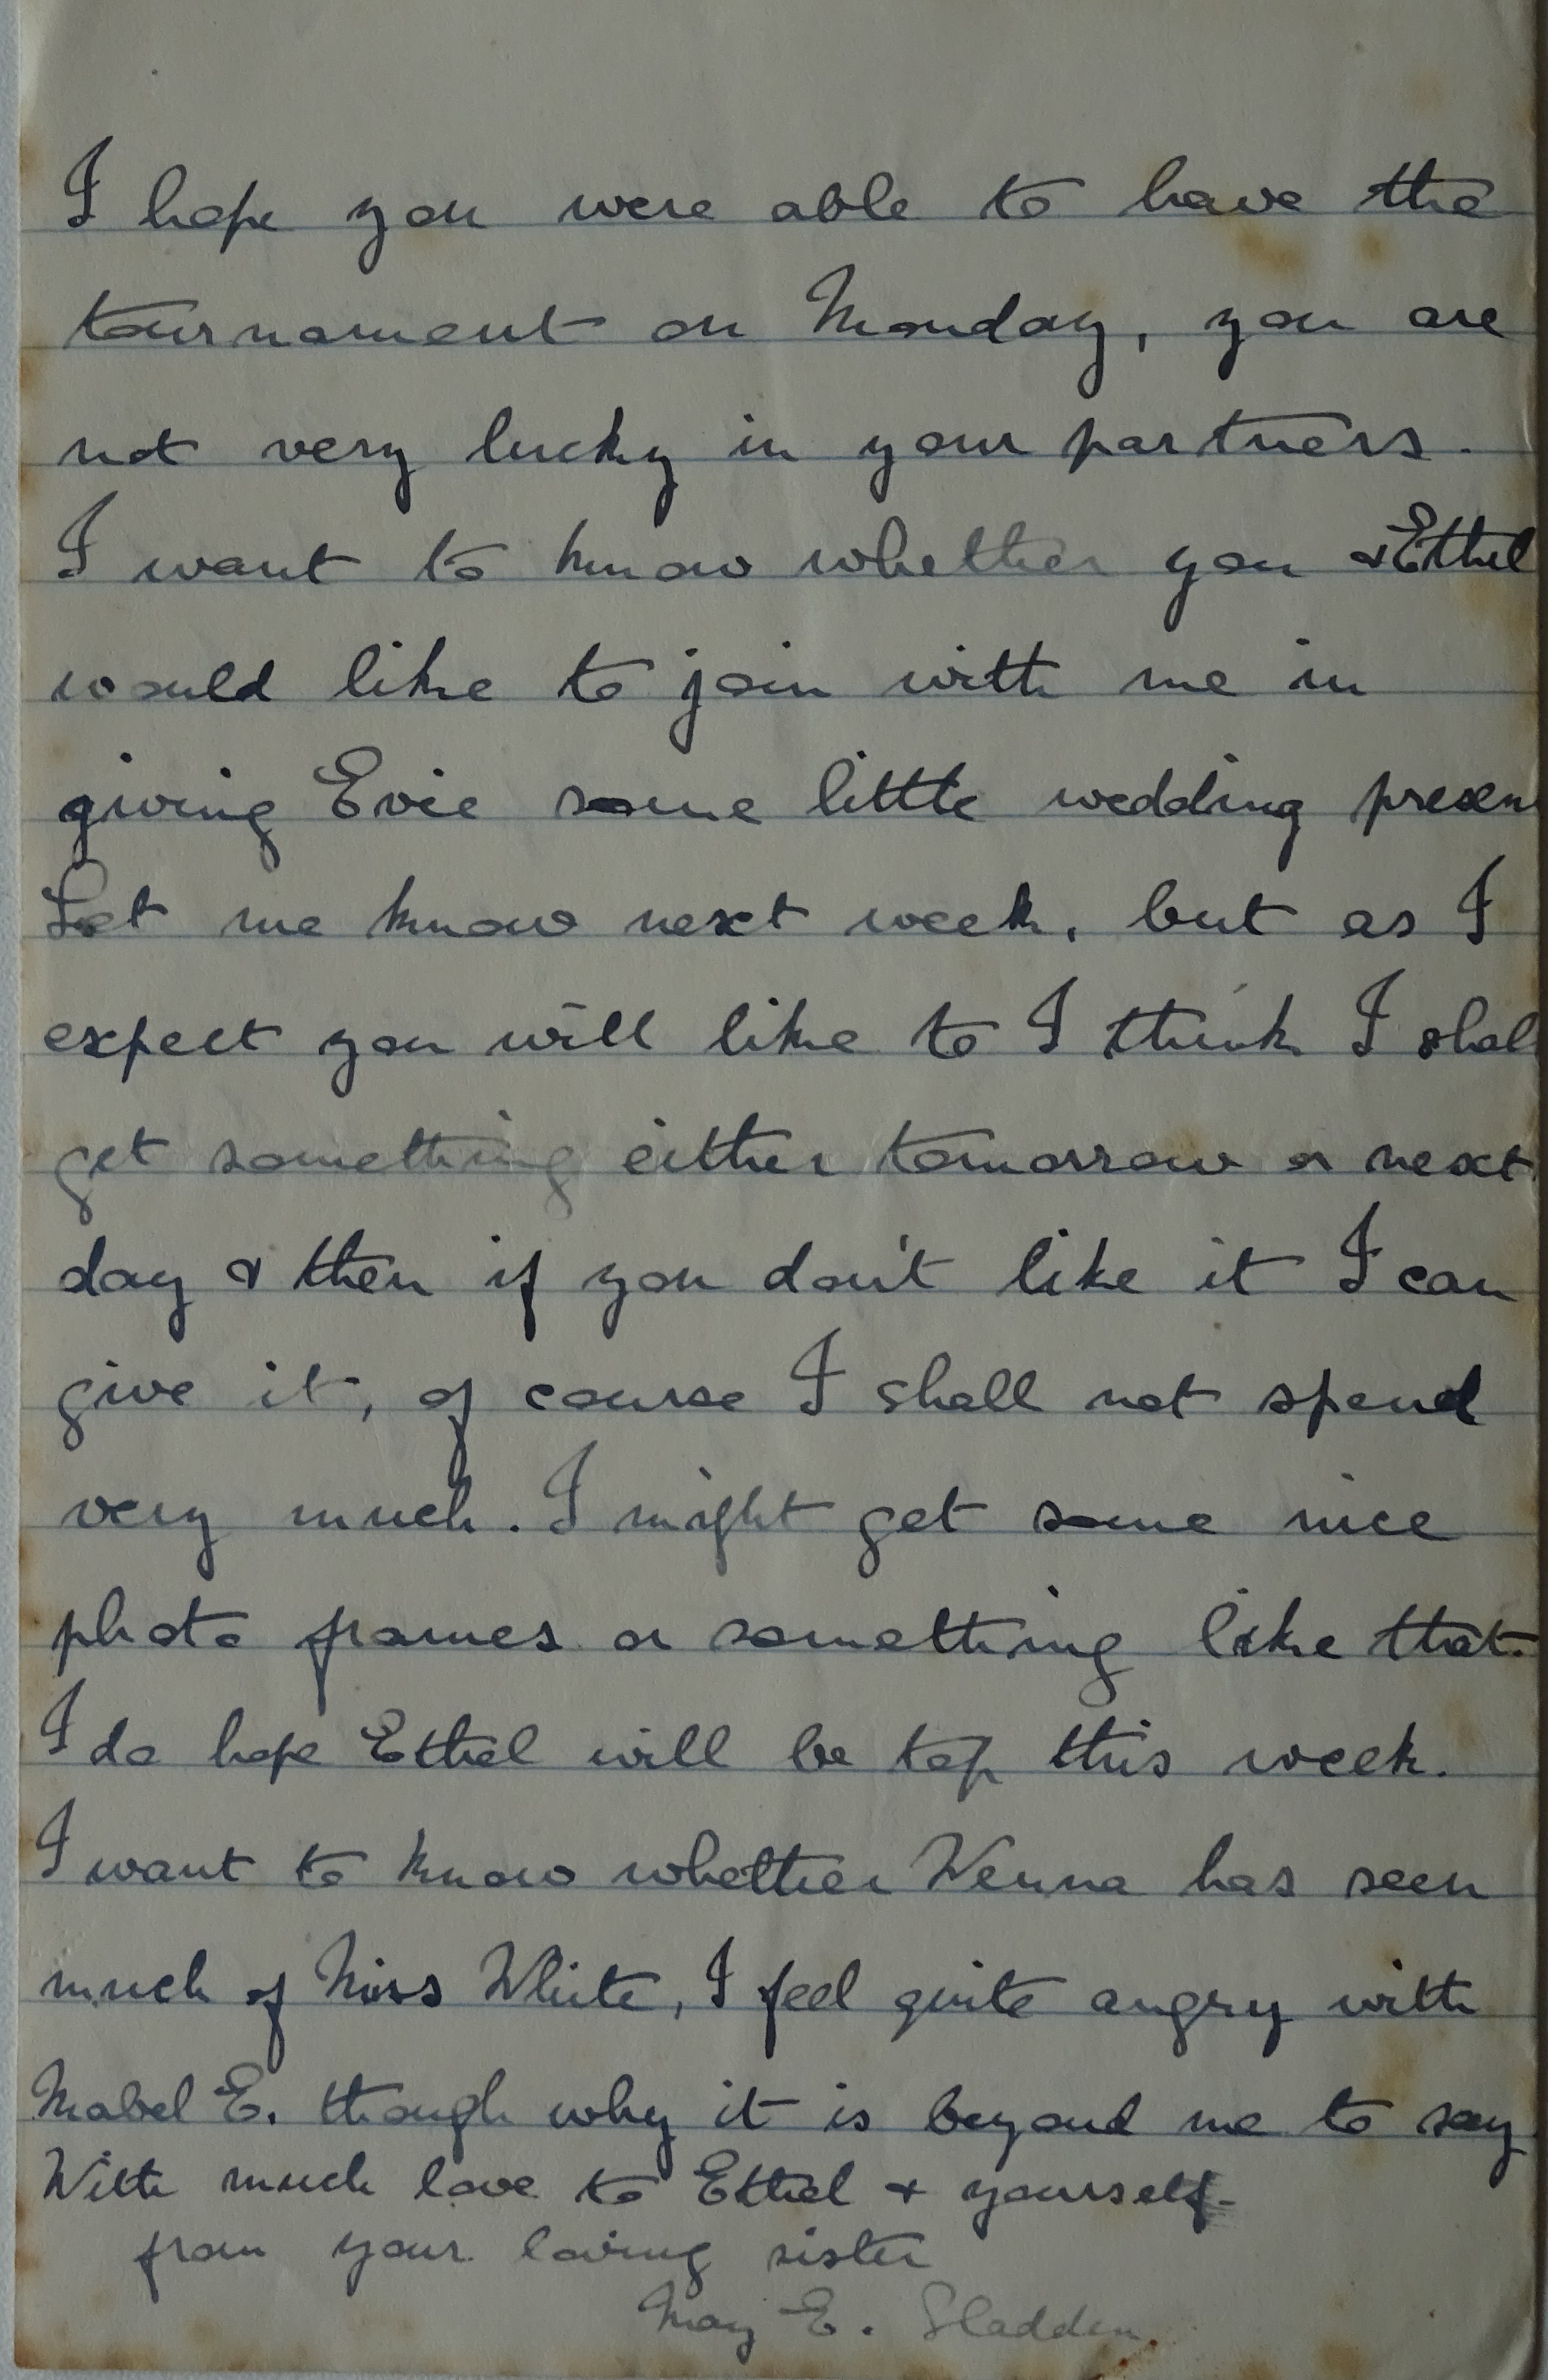 I hope you were able to have the
tournament on Monday, you are
not very lucky in your partners.
I want to know whether you & Ethel
would like to join with me in
giving Evie some little wedding presen
Let me know next week, but as I
expect you will like to I think I shal
get something either tomorrow or next
day & then if you don't like it I can
give it, of course I shall not spend
very much. I might get some nice
photo frames or something like that.
I do hope Ethel will be top this week.
I want to know whether Wenna has seen
much of Miss White, I feel quite angry with
Mabel E. though why it is beyond me to say
With much love to Ethel & yourself
from your loving sister
May E. Sladden.